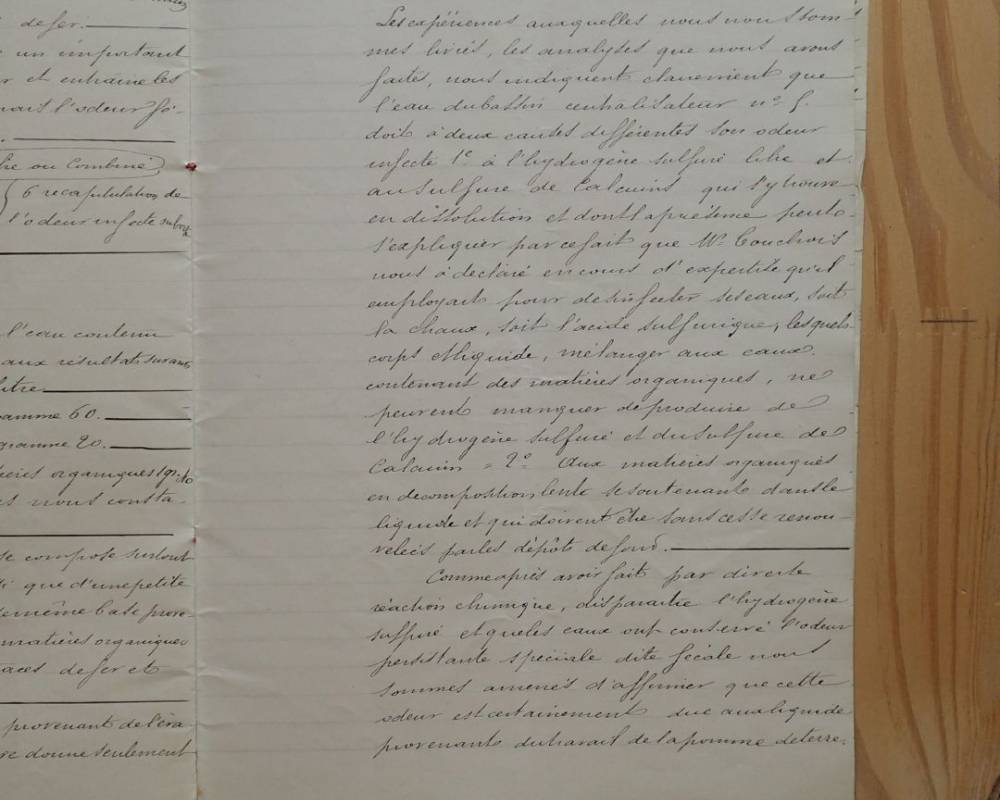 de fer.
un important
et entraine les
l'odeur fé-
ou Combiné
6 recapitulation de
l'odeur infecte
l'eau contenu
aux resultats suivants
litre
gramme 60.
gramme 20.
organiques
nous consta
se compose surtout
que d'une petite
même base prove
matières organiques
traces de fer et
provenant de
donne seulement
Les expériences auxquelles nous nous som-
mes livrés, les analyses que nous avons
faites, nous indiquent clairement que
l'eau du bassin centralisateur n° 5.
doit à deux causes différentes son odeur
infecte 1° à l'hydrogène sulfuré libre et
au sulfure de Calcium qui s'y trouve
en dissolution et dont la présence peut
s'expliquer par ce fait que Mr Couchois
nous à declaré en cours d'expertise qu'il
employait pour desinfecter ses eaux, soit
la chaux, soit l'acide sulfurique, lesquels
corps et liquide, mélanger aux eaux
contenant des matières organiques, ne
peuvent manquer de produire de
l'hydrogène sulfuré et du sulfure de
Calcium = 2° Aux matières organiques
en decomposition lente se soutenant dans le
liquide et qui doivent être sans cesse renou-
velées par les dépôts de fond.
Comme après avoir fait par directe
réaction chimique, disparaitre l'hydrogène
sulfuré et que les eaux ont conservé l'odeur
persistante speciale dite fécale nous
sommes amenés d'affirmer que cette
odeur est certainement due au liquide
provenant du travail de la pomme de terre.